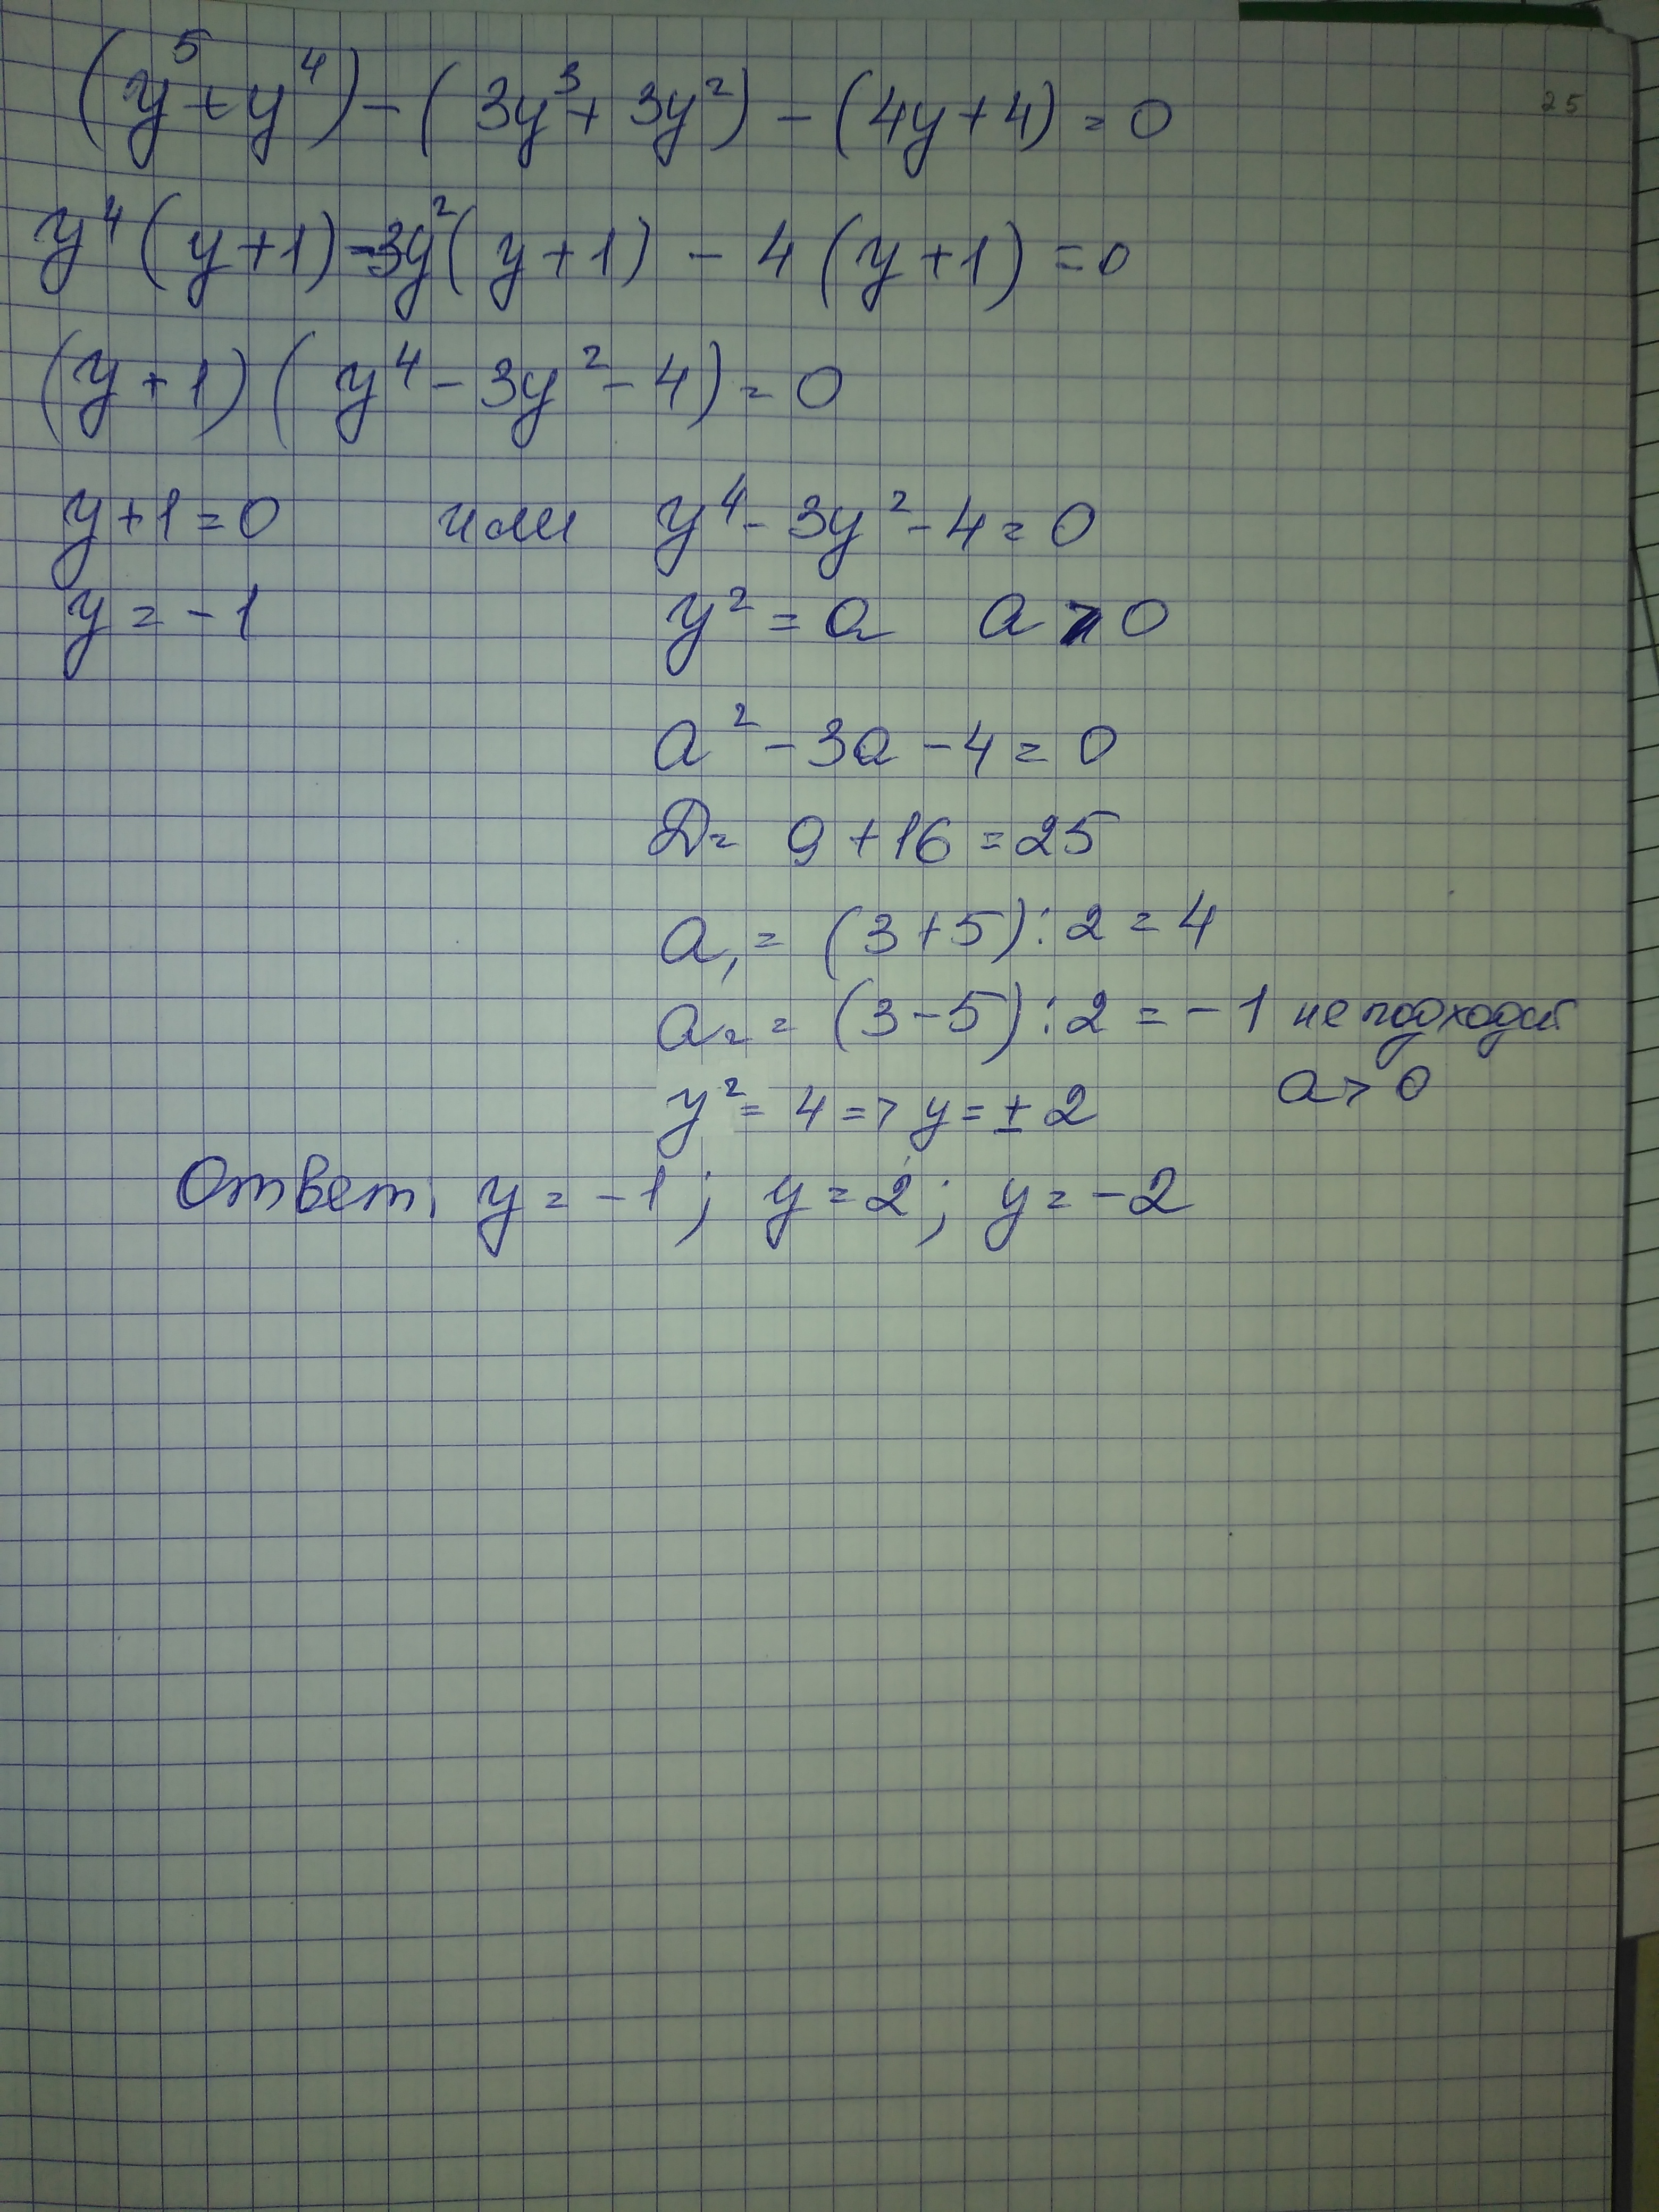 25
(y⁵+y⁴)-(3y³+3y²)-(4y+4)=0
y⁴(y+1)-3y²(y+1)-4(y+1)=0
(y+1)(y⁴-3y²-4)=0
y+1=0 или y⁴-3y²-4=0
y=-1 y²=a a>0
a²-3a-4=0
D=9+16=25
a₁=(3+5):2=4
a₂=(3-5):2=-1 не подходит
a>0
y²=4=>y=±2
Ответ: y=-1; y=2; y=-2